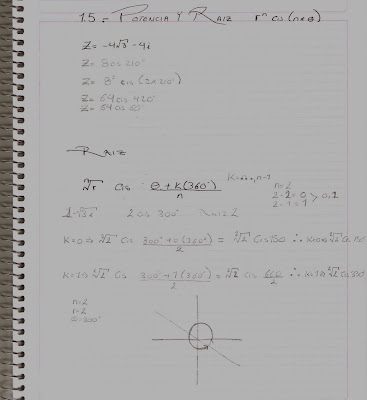 1.5 = POTENCIA Y RAIZ rⁿ cis (n×θ)
Z= -4√3 -4i
Z= 8 cis 210°
Z= 8² cis (2×210°)
Z= 64 cis 420°
Z= 64 cis 60°
RAIZ
ⁿ√r cis θ+K(360°)/n K=0,1...,n-1
n=2
2-2=0 > 0,1
2-1=1
1-√3i 2 cis 300° raiz 2
K=0⇒ ²√2 cis 300°+0(360°)/2 = ²√2 cis 150 ∴ ²√2 cis 150
K=1⇒ ²√2 cis 300°+1(360°)/2 = ²√2 cis 660/2 ∴ ²√2 cis 330
n=2
r=2
θ=300°